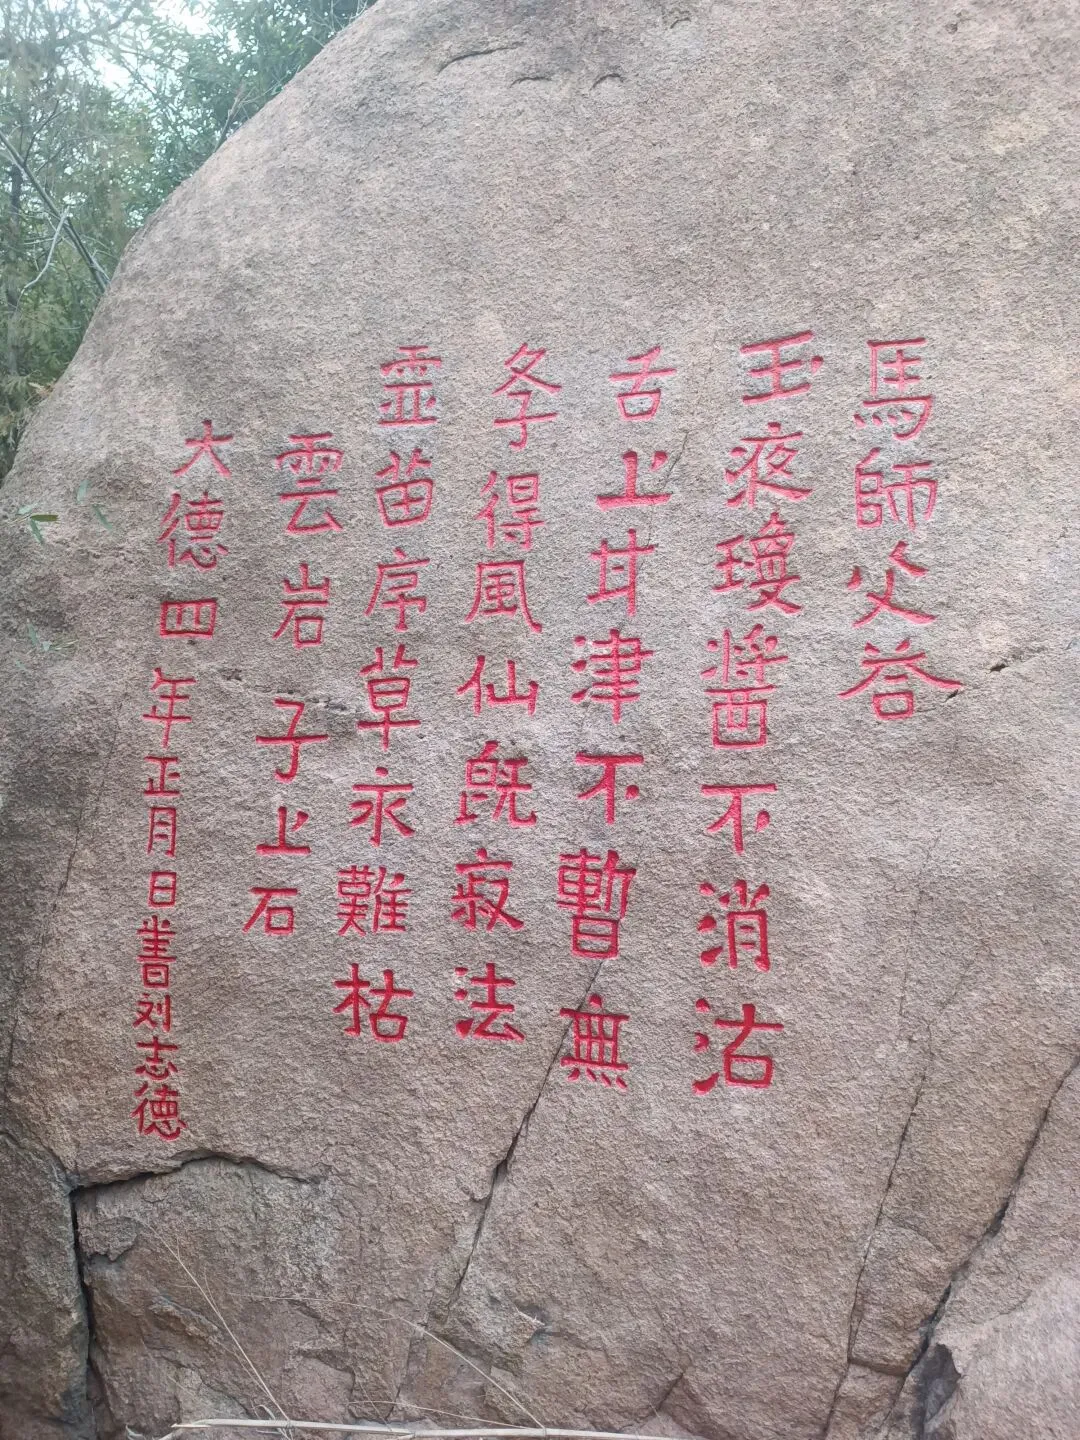 馬師父荅
玉液瓊醬不消沽
舌上甘津不暫無
斈得風仙旣寂法
霊苗序草永難枯
雲岩子上石
大德四年正月日書刘志德